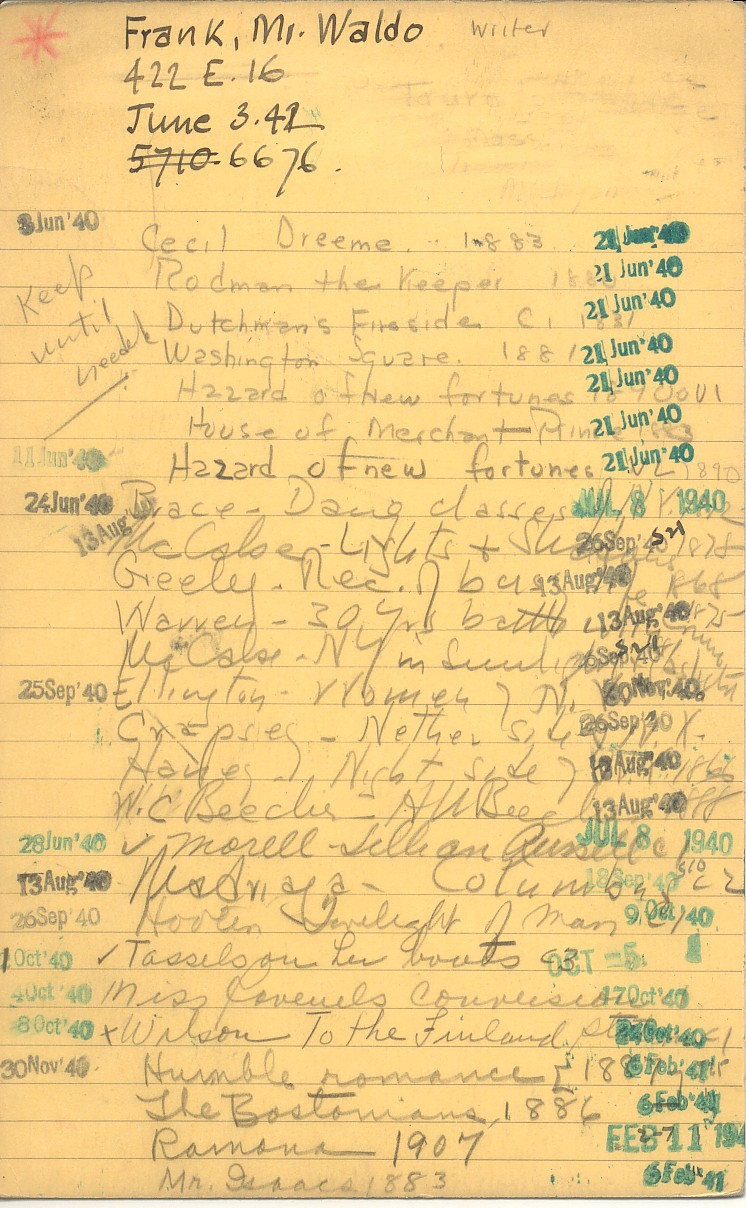 Frank, Mr. Waldo Writer
422 E. 16
June 3. 42
5710 6676
3 Jun '40
Cecil Dreeme. 1883 21 Jun '40
Keep until needed
Rodman the Keeper 21 Jun '40
Dutchman's Fireside C1 1831 21 Jun '40
Washington Square. 1881 21 Jun '40
Hazard of New fortunes 1890 V1 21 Jun '40
House of Merchant Prince 21 Jun '40
11 Jun '40 Hazard of new fortunes V2 1890 21 Jun '40
24 Jun '40 Brace - Dang classes JUL 8 1940
13 Aug McCabe - Lights + 26 Sep '40
Greeley - Rec. of busy 1868 13 Aug '40
Warren - 30 Yrs battle 13 Aug '40
McCabe - NY in 26 Sep '40
25 Sep '40 Ellington - Women of N. 20 Nov '40
Crapsey - Nether side N.Y. 26 Sep '40
Night side of 13 Aug '40
W.C Beecher - 13 Aug '40
28 Jun '40 ✓ Morell - Lillian Russell C1 JUL 8 1940
13 Aug '40 Madariaga - Columbus C2 18 Sep
26 Sep '40 Hooton Twilight of Man C1 9 Oct '40
1 Oct '40 ✓ Tassels on her boots C3 OCT -5
4 Oct '40 Miss Ravenels Conversion 17 Oct '40
8 Oct '40 x Wilson To the Finland C1 24 Oct '40
30 Nov '40 Humble romance 1887 6 Feb '41
The Bostonians, 1886 6 Feb '41
Ramona 1907 FEB 11 194
Mr. Isaacs 1883 6 Feb '41